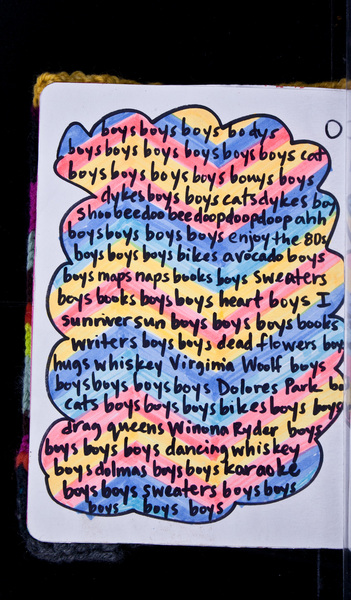 boys boys boys bodys
boys boys boys boys boys boys cat
boys boys boys boys bowys boys
dykes boys boys cats dykes boy
shoobeedoobeedoopdoopdoop ahh
boys boys boys boys enjoy the 80s
boys boys boys bikes avocado boys
boys maps naps books boys sweaters
boys books boys boys heart boys I
sunriver sun boys boys boys books
writers boys boys dead flowers boy
hugs whiskey Virginia Woolf boys
boys boys boys boys Dolores Park bo
cats boys boys boys bikes boys boys
drag queens Winona Ryder boys
boys boys boys dancing whiskey
boys dolmas boys boys karaoke
boys boys sweaters boys boys
boys boys boys
O